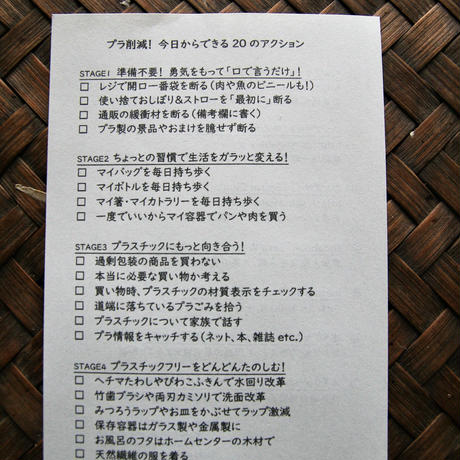 プラ削減！今日からできる20のアクション
STAGE1 準備不要！勇気をもって「口で言うだけ」！
□ レジで開口一番袋を断る（肉や魚のビニールも！）
□ 使い捨ておしぼり＆ストローを「最初に」断る
□ 通販の緩衝材を断る（備考欄に書く）
□ プラ製の景品やおまけを臆せず断る
STAGE2 ちょっとの習慣で生活をガラッと変える！
□ マイバッグを毎日持ち歩く
□ マイボトルを毎日持ち歩く
□ マイ箸・マイカトラリーを毎日持ち歩く
□ 一度でいいからマイ容器でパンや肉を買う
STAGE3 プラスチックにもっと向き合う！
□ 過剰包装の商品を買わない
□ 本当に必要な買い物か考える
□ 買い物時、プラスチックの材質表示をチェックする
□ 道端に落ちているプラごみを拾う
□ プラスチックについて家族で話す
□ プラ情報をキャッチする（ネット、本、雑誌 etc.）
STAGE4 プラスチックフリーをどんどんたのしむ！
□ ヘチマたわしやびわこふきんで水回り改革
□ 竹歯ブラシや両刃カミソリで洗面改革
□ みつろうラップやお皿をかぶせてラップ激減
□ 保存容器はガラス製や金属製に
□ お風呂のフタはホームセンターの木材で
□ 天然繊維の服を着る